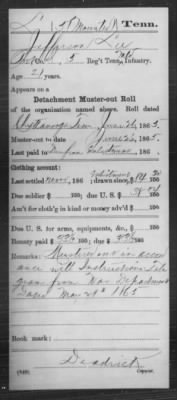 L | 5 Mounted | Tenn.
Jefferson Lee
Reg't Tenn. Infantry.
Age 21 years.
Appears on a
Detachment Muster-out Roll
of the organization named above. Roll dated
Chattanooga Tenn June 26, 1865.
Muster-out to date June 26, 1865.
Last paid to
Clothing account:
Last settled never, ; drawn since $
Due soldier $ /100; due U. S. $ /100
Am't for cloth'g in kind or money adv'd $ /100
Due U. S. for arms, equipments, &c., $ /100
Bounty paid $ /100; due $ /100
Remarks: Mustered out in accor
dance with Instructions Tele
gram from War Department
Dated May 29th 1865
Deadrick
Copyist.